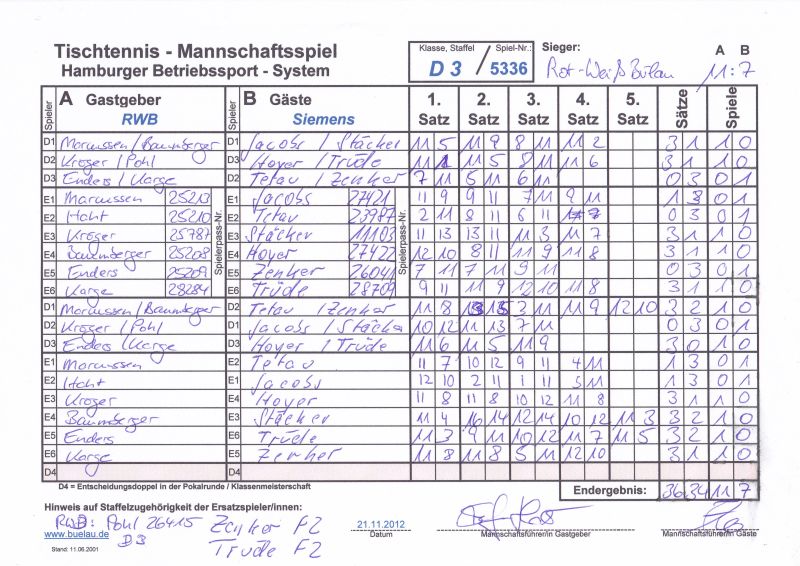 Tischtennis - Mannschaftsspiel
Hamburger Betriebssport - System
Klasse, Staffel Spiel-Nr.:
D 3 / 5336
Sieger: A B
Rot-Weiß Bülau 11:7
Spieler A Gastgeber RWB Spieler B Gäste Siemens 1. Satz 2. Satz 3. Satz 4. Satz 5. Satz Sätze Spiele
D1 Marcussen / Baumberger D1 Jacobs / Stäcker 11 5 11 9 8 11 11 2 3 1 1 0
D2 Kröger / Pohl D3 Hoyer / Trüde 11 5 11 8 11 11 6 3 1 1 0
D3 Enders / Karge D2 Tetau / Zenker 7 11 5 11 6 11 0 3 0 1
E1 Marcussen 25213 E1 Jacobs 27421 11 9 9 11 7 11 9 11 1 3 0 1
E2 Haht 25210 E2 Tetau 23987 2 11 8 11 6 11 0 3 0 1
E3 Kröger 25787 E3 Stäcker 11103 11 13 13 11 11 3 11 7 3 1 1 0
E4 Baumberger 25208 E4 Hoyer 27422 12 10 8 11 11 9 11 8 3 1 1 0
E5 Enders 25209 E5 Zenker 26041 7 11 7 11 9 11 0 3 0 1
E6 Karge 28284 E6 Trüde 28709 9 11 11 9 12 10 11 8 3 1 1 0
Spielerpass-Nr. Spielerpass-Nr.
D1 Marcussen / Baumberger D2 Tetau / Zenker 11 8 3 11 11 9 12 10 3 2 1 0
D2 Kröger / Pohl D1 Jacobs / Stäcke 10 12 11 13 7 11 0 3 0 1
D3 Enders / Karge D3 Hoyer / Trüde 11 6 11 5 11 9 3 0 1 0
E1 Marcussen E2 Tetau 11 7 10 12 9 11 4 11 1 3 0 1
E2 Haht E1 Jacobs 12 10 2 11 11 5 11 1 3 0 1
E3 Kröger E4 Hoyer 11 8 11 8 10 12 11 8 3 1 1 0
E4 Baumberger E3 Stäcker 11 4 16 14 12 14 10 12 11 3 3 2 1 0
E5 Enders E6 Trüde 11 3 9 11 10 12 11 7 11 5 3 2 1 0
E6 Karge E5 Zenker 11 8 11 8 5 11 12 10 3 1 1 0
D4 D4
D4 = Entscheidungsdoppel in der Pokalrunde / Klassenmeisterschaft
Endergebnis: 36 34 11 7
Hinweis auf Staffelzugehörigkeit der Ersatzspieler/innen:
RWB: Pohl 26415 Zenker F2
D3 Trüde F2
www.buelau.de
21.11.2012
Datum Mannschaftsführer/in Gastgeber Mannschaftsführer/in Gäste
Stand: 11.06.2001